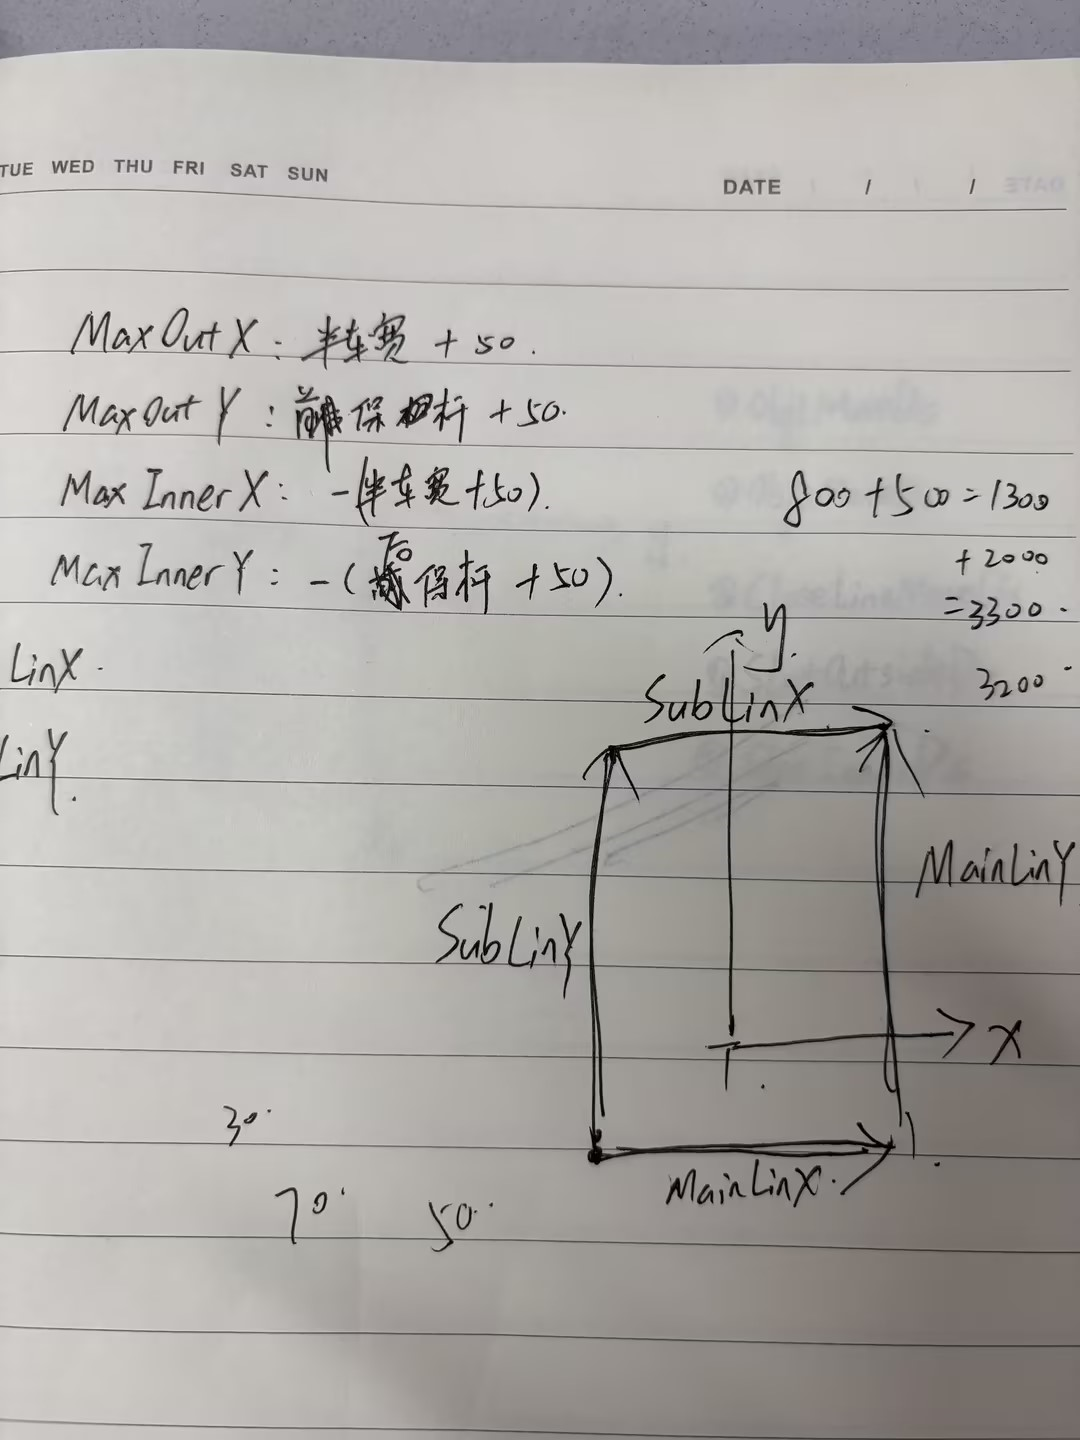 TUE WED THU FRI SAT SUN
DATE / /
MaxOutX: 半车宽 + 50.
MaxOutY: 前保杆 + 50.
MaxInnerX: -(半车宽+50).
MaxInnerY: -(后保杆 + 50).
800+500=1300
+2000
=3300.
3200
LinX.
LinY.
y
SubLinX
MainLinY
SubLinY
X
MainLinX.
30
70
50